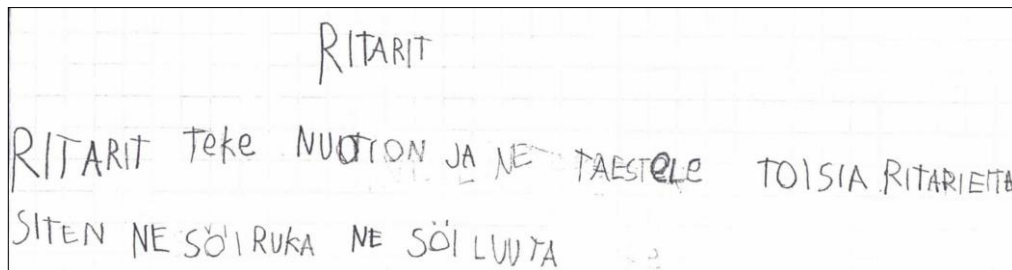 RITARIT
RITARIT TeKe NUOTION JA NE TAESTeLe TOISIA RITARIEITA
SITEN NE SÖI RUKA NE SÖI LUUTA